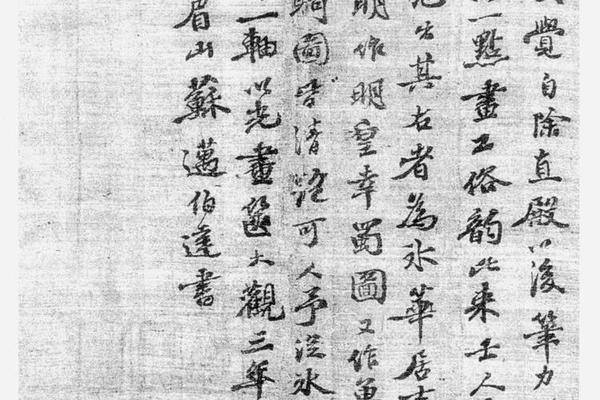 覺自除直殿以後筆力
一點畫工俗韵比来士人
出其右者為水華居士
明作明皇幸蜀圖又作
圖皆清可人予從水
一軸以光畫篋大觀三年
眉山蘇邁伯達書